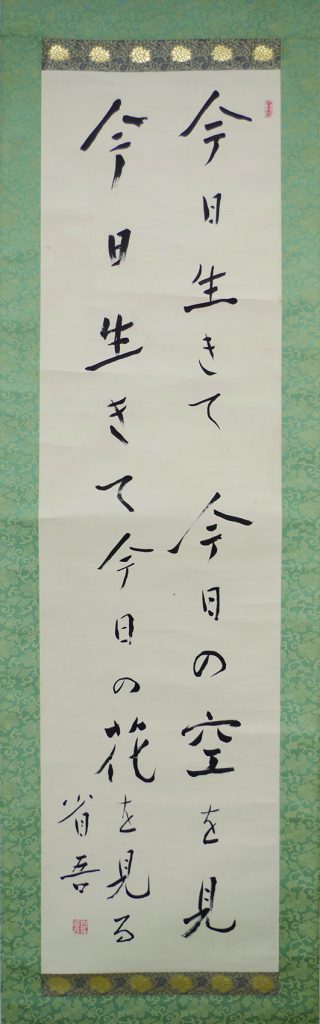 今日生きて今日の空を見
今日生きて今日の花を見る
省吾